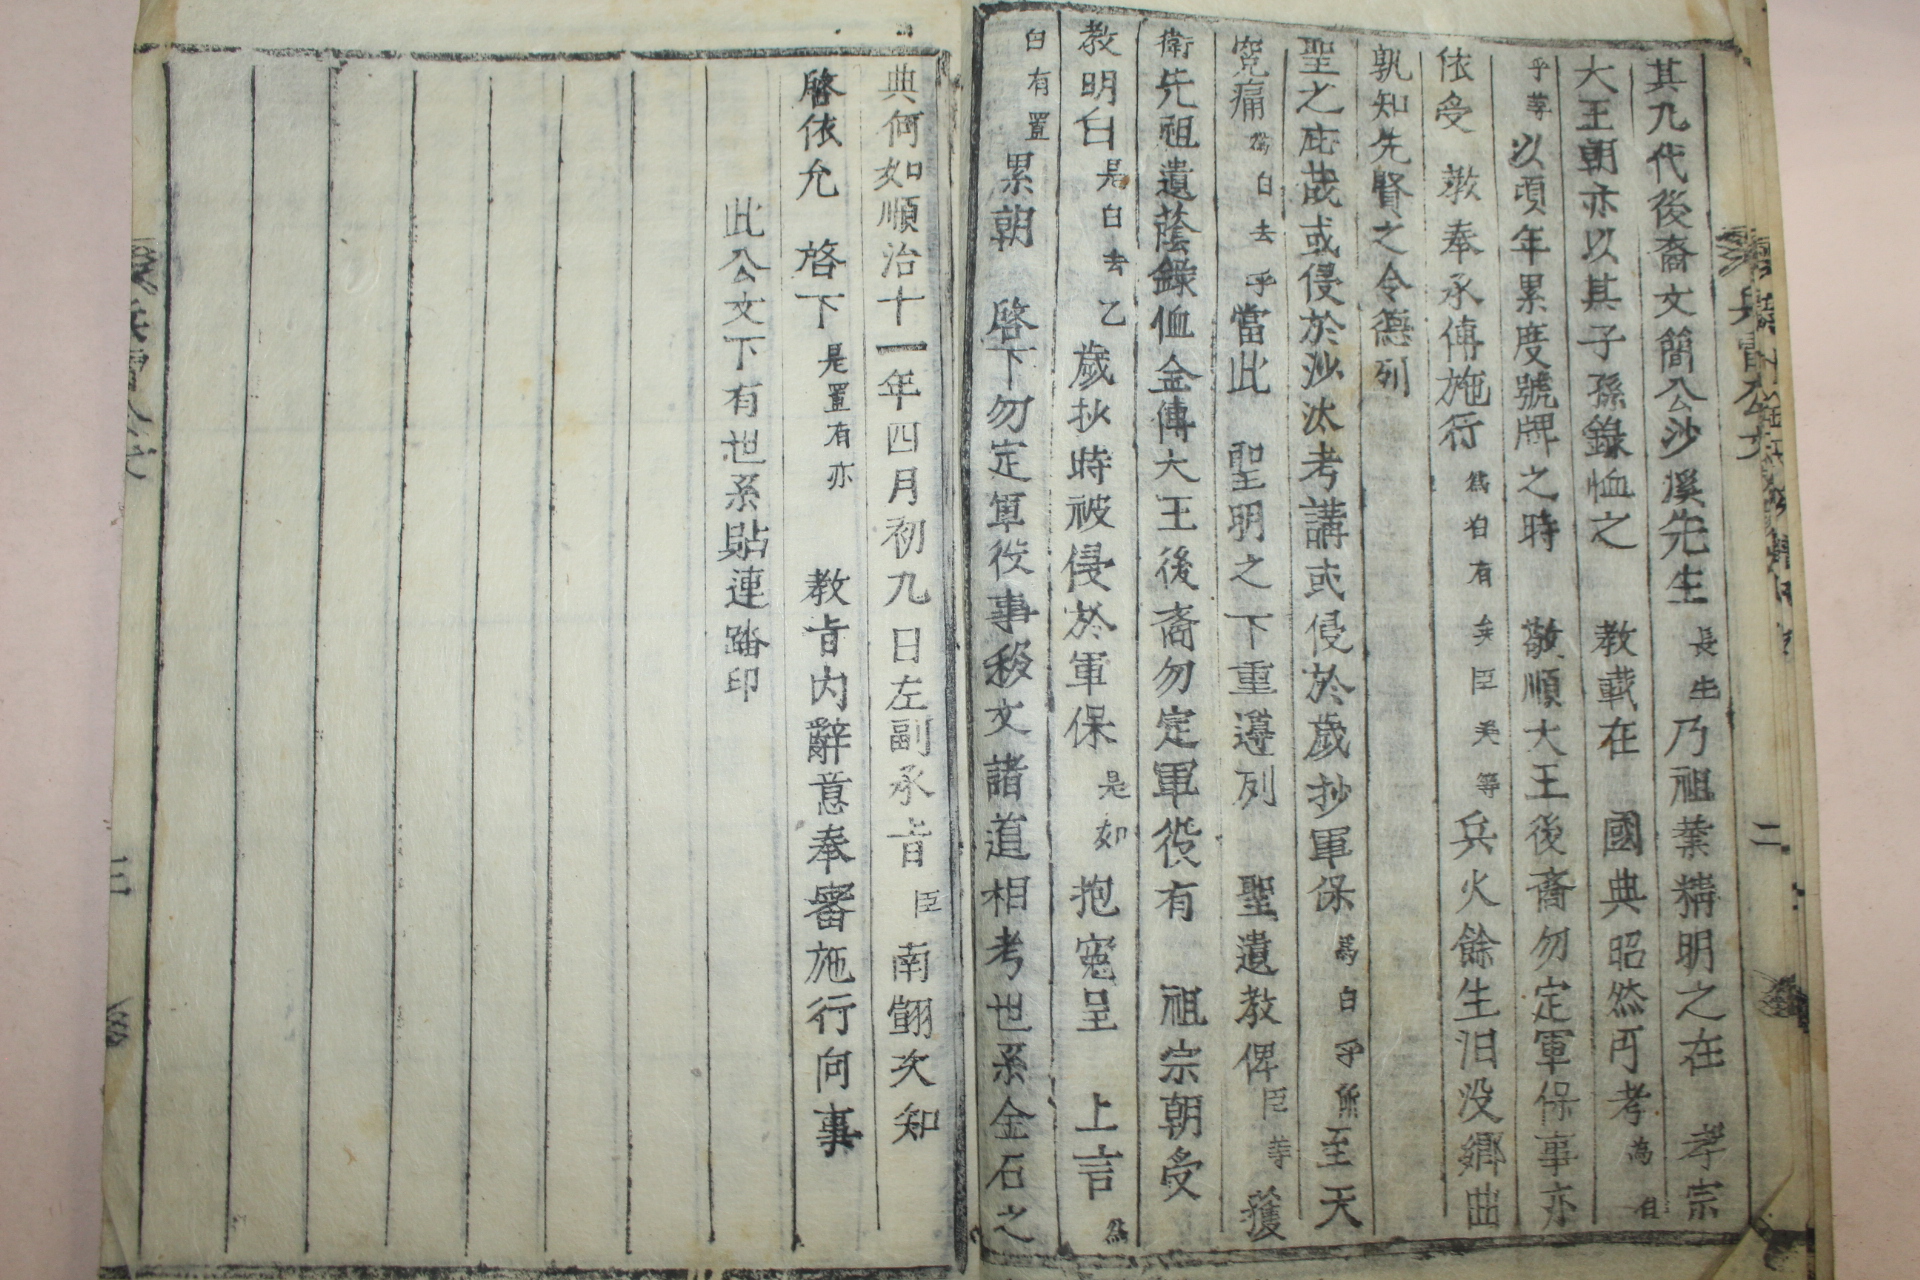 其九代後裔文簡公沙溪先生長生乃祖業精明之在 孝宗
大王朝亦以其子孫錄恤之 教載在 國典昭然可考為白
乎等以頃年累度號牌之時 敬順大王後裔勿定軍保事亦
依受 教奉承傳施行為白有矣臣矣等兵火餘生汨没鄉曲
孰知先賢之令德列
聖之庇蔭或侵於沙汰考講或侵於歲抄軍保為白乎所至天
冤痛為白去乎當此 聖明之下重遵列 聖遺教俾臣等獲
衛先祖遺蔭錄恤金傅大王後裔勿定軍役有 祖宗朝受
教明白是白去乙歲抄時被侵於軍保是如抱寃呈 上言為
白有置累朝 啓下勿定軍役事移文諸道相考世系金石之
典何如順治十一年四月初九日左副承旨臣南翧次知
啓依允 啓下是置有亦 教旨内辭意奉審施行向事
此公文下有世系貼連踏印
三
二